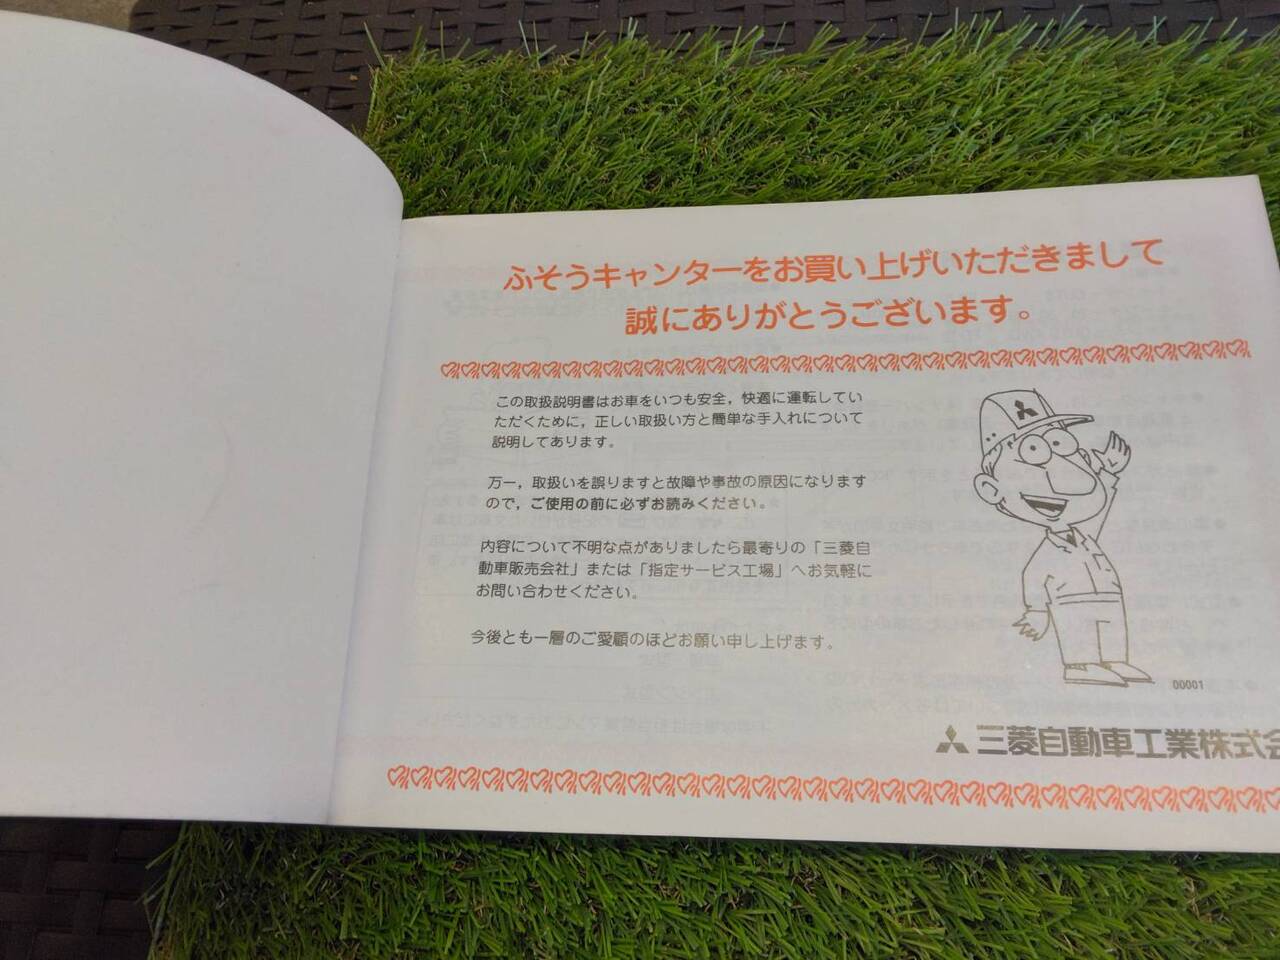 ふそうキャンターをお買い上げいただきまして
誠にありがとうございます。
この取扱説明書はお車をいつも安全，快適に運転してい
ただくために，正しい取扱い方と簡単な手入れについて
説明してあります。
万一，取扱いを誤りますと故障や事故の原因になります
ので，ご使用の前に必ずお読みください。
内容について不明な点がありましたら最寄りの「三菱自
動車販売会社」または「指定サービス工場」へお気軽に
お問い合わせください。
今後とも一層のご愛顧のほどお願い申し上げます。
00001
三菱自動車工業株式会